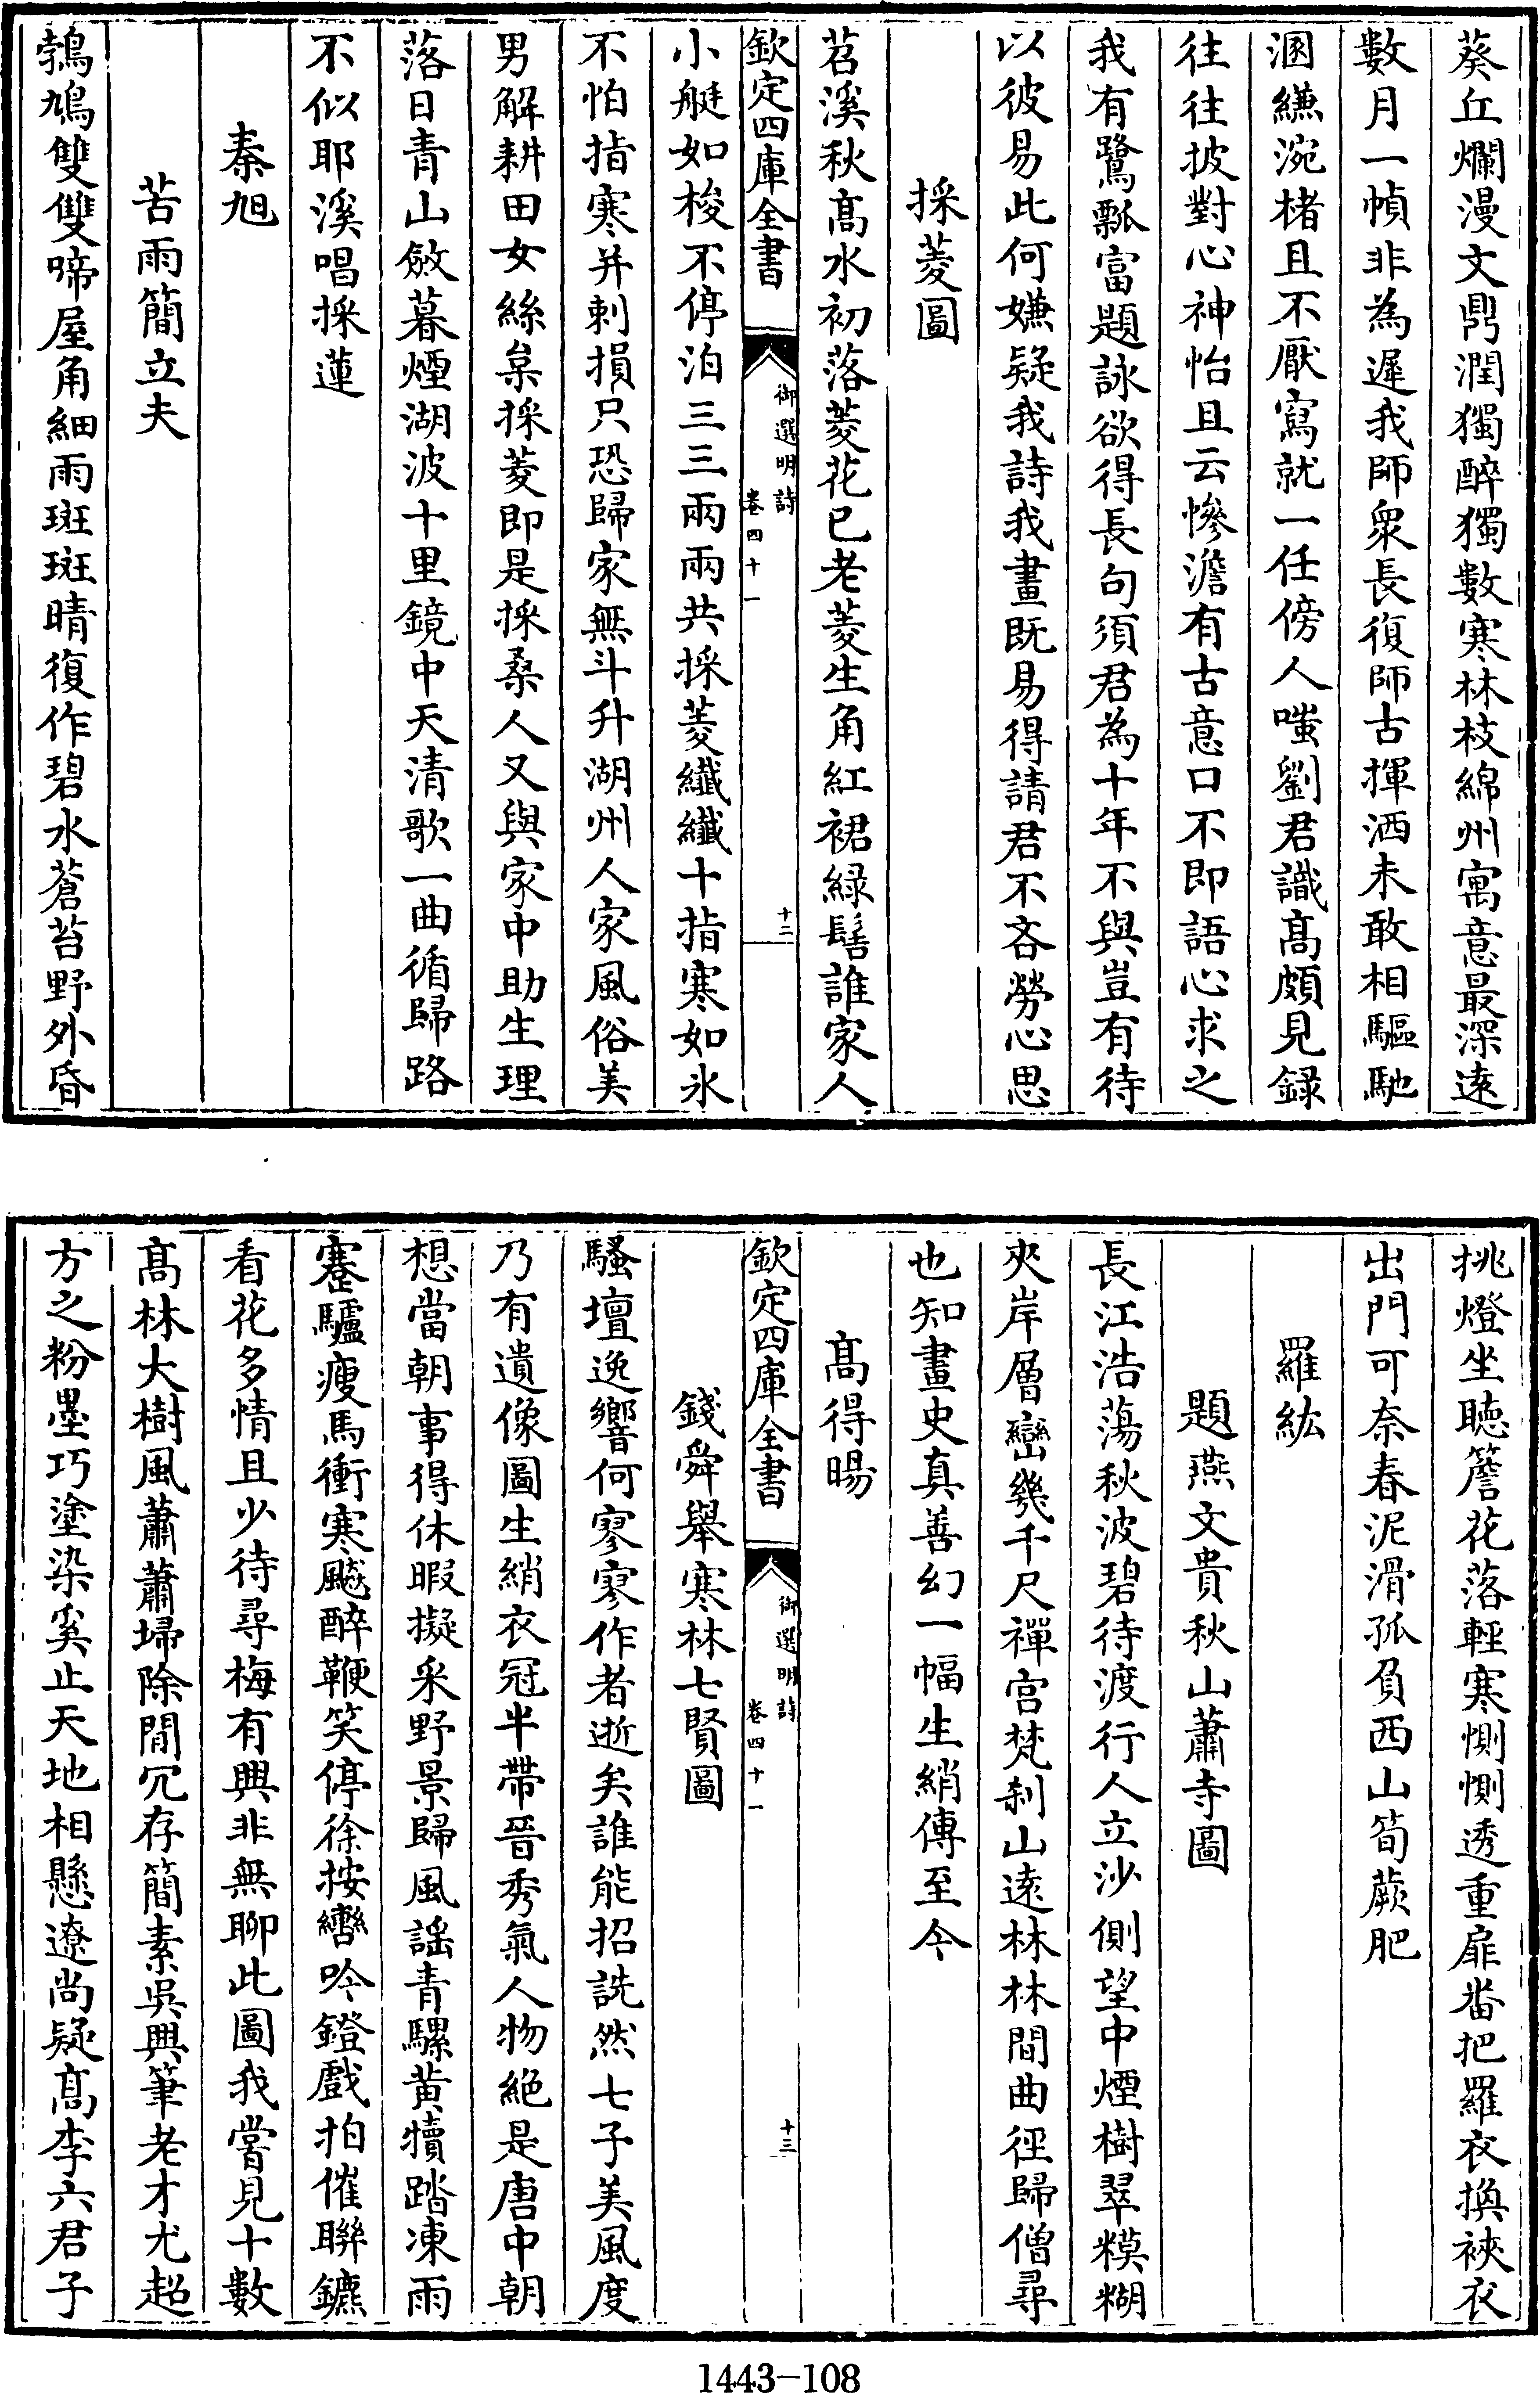 葵丘爛漫文鼎潤獨醉獨數寒林枝綿州寓意最深遠
數月一幀非為遲我師衆長復師古揮洒未敢相驅馳
溷縑涴楮且不厭寫就一任傍人嗤劉君識髙頗見録
往往披對心神怡且云慘澹有古意口不即語心求之
我有鷺瓢富題詠欲得長句須君為十年不與豈有待
以彼易此何嫌疑我詩我畫既易得請君不吝勞心思
採菱圖
苕溪秋髙水初落菱花已老菱生角紅裙緑髩誰家人
欽定四庫全書
御選明詩
卷四十一
十二
小艇如梭不停泊三三兩兩共採菱纖纖十指寒如氷
不怕指寒并刺損只恐歸家無斗升湖州人家風俗美
男解耕田女絲枲採菱即是採桑人又與家中助生理
落日青山斂暮煙湖波十里鏡中天清歌一曲循歸路
不似耶溪唱採蓮
秦旭
苦雨簡立夫
鵓鳩雙雙啼屋角細雨斑斑晴復作碧水蒼苔野外昏
挑燈坐聴簷花落輕寒惻惻透重扉畨把羅衣換裌衣
出門可奈春泥滑孤負西山筍蕨肥
羅紘
題燕文貴秋山蕭寺圖
長江浩蕩秋波碧待渡行人立沙側望中煙樹翠糢糊
夾岸層巒幾千尺禪宫梵刹山遠林林間曲徑歸僧尋
也知畫史真善幻一幅生綃傳至今
髙得暘
欽定四庫全書
御選明詩
卷四十一
十三
錢舜舉寒林七賢圖
騷壇逸響何寥寥作者逝矣誰能招詵然七子美風度
乃有遺像圖生綃衣冠半帶晉秀氣人物絶是唐中朝
想當朝事得休暇擬采野景歸風謡青騾黄犢踏凍雨
蹇驢瘦馬衝寒飇醉鞭笑停徐按轡吟鐙戲拍催聯鑣
看花多情且少待尋梅有興非無聊此圖我嘗見十數
髙林大樹風蕭蕭埽除閒冗存簡素吳興筆老才尤超
方之粉墨巧塗染奚止天地相懸遼尚疑髙李六君子
1443-108